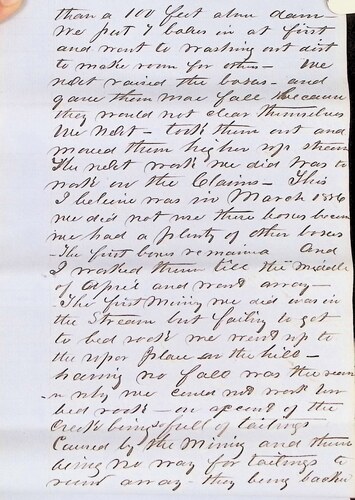 than a 100 feet above dam -
we put 7 boxes in at first
and went to washing out dirt
to make room for others - We
next raised the boxes - and
gave them more fall because
they would not clear themselves
We next - took them out and
moved them higher up stream
The next work we did was to
work on the Claims - This
I beleive was in March 1856
we did not use these boxes because
we had a plenty of other boxes
- The first boxes remained And
I worked them till the middle
of April and went away -
- The first Mining we did was in
the Stream but failing to get
to bed rock we went up to
the upper place on the hill -
having no fall was the reason
why we could not work
bed rock - on account of the
Creek being full of tailings
Caused by the Mining and there
being no way for tailings to
run away - they being backed